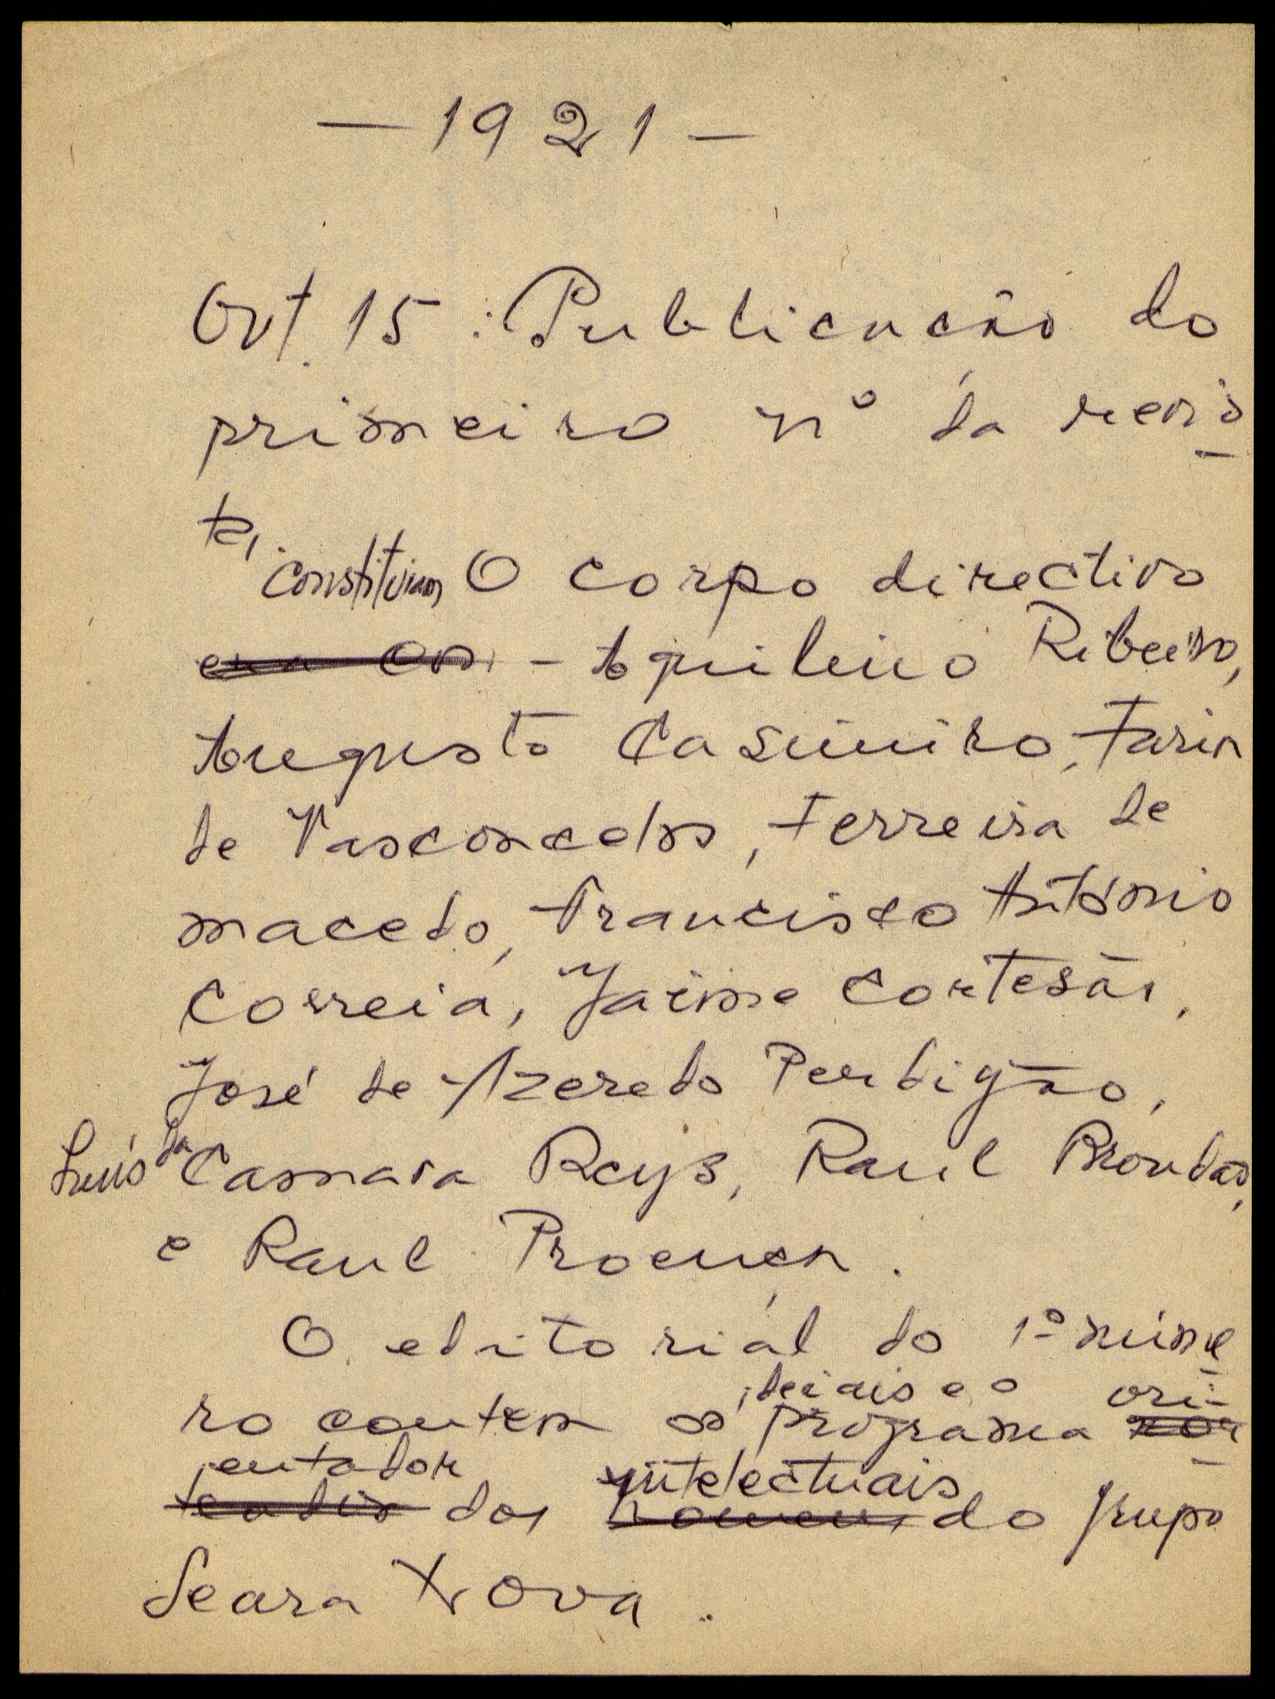 — 1921 —
Out. 15: Publicação do
primeiro nº da revis-
ta.
constituíam O corpo directivo
era os - Aquilino Ribeiro,
Augusto Casimiro, Faria
de Vasconcelos, Ferreira de
Macedo, Francisco António
Correia, Jaime Cortesão,
José de Azeredo Perdigão,
Luís da Camara Reys, Raul Brandão,
e Raul Proença.
O editorial do 1º núme
ideiais e o ori-
ro contem os programa nor
entador intelectuais
teador dos homens do grupo
Seara Nova.